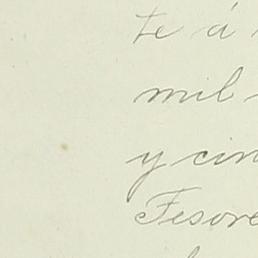 te á
mil
y cin
Tesore